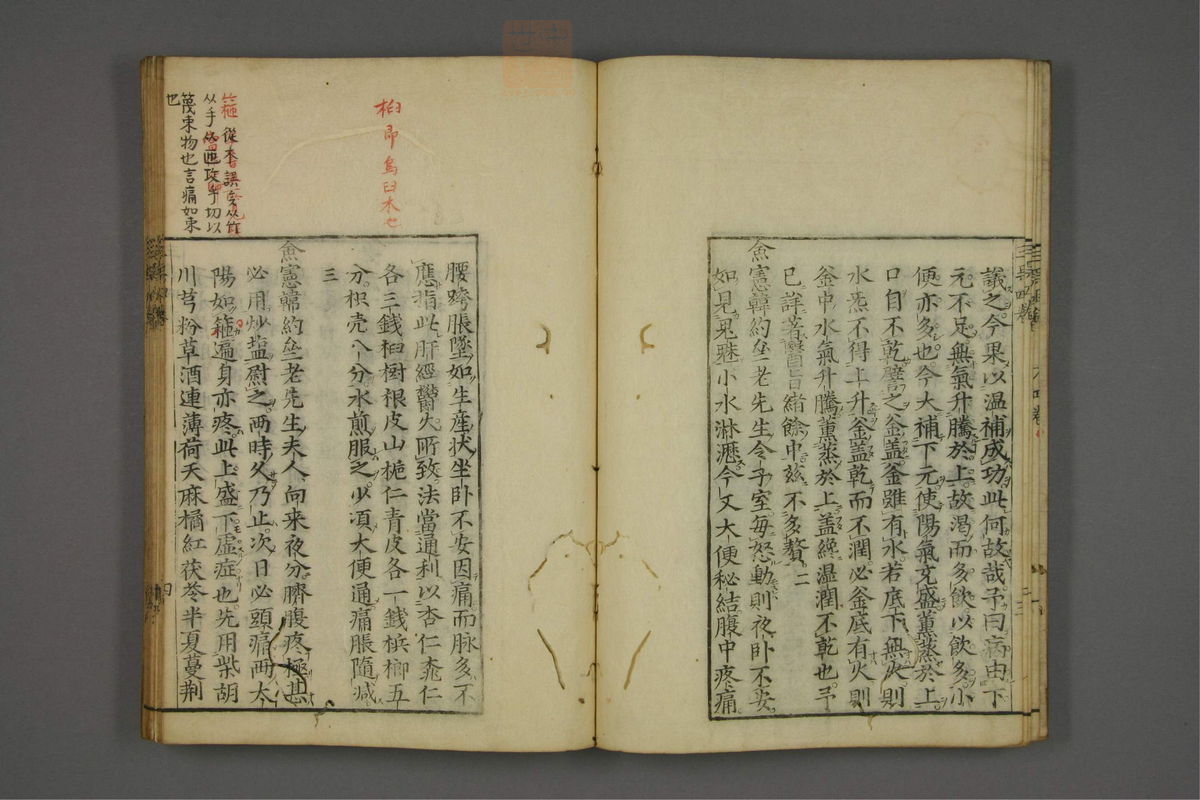 議之今果以温補成功此何故哉予曰病由下
元不足無氣升騰於上故渴而多飲以飲多小
便亦多也今大補下元使陽氣充盛薰蒸於上
口自不乾譬之釜盖釜雖有水若底下無火則
水炁不得上升釜盖乾而不潤必釜底有火則
釜中水氣升騰薰蒸於上盖纔温潤不乾也予
已詳著醫旨緒餘中兹不多贅二
僉憲韓約之老先生令子室每怒動則夜卧不安
如見鬼魅小水淋瀝今又大便秘結腹中疼痛
腰跨脹墜如生産狀坐卧不安因痛而脉多不
應指此肝經鬱失所致法當通利以杏仁桃仁
各三錢桕樹根皮山梔仁青皮各一錢檳榔五
分枳壳八分水煎服之少頃大便通痛脹隨減
三
僉憲韓約之老先生夫人向来夜分臍腹疼極甚
必用炒塩熨之两時久乃止次日必頭痛两太
陽如箍遍身亦疼此上盛下虛症也先用柴胡
川芎粉草酒連薄荷天麻橘紅茯苓半夏蔓荆
桕即烏臼木也
箍
從本誤
从手
攻乎切以
篾束物也言痛如束
也
四